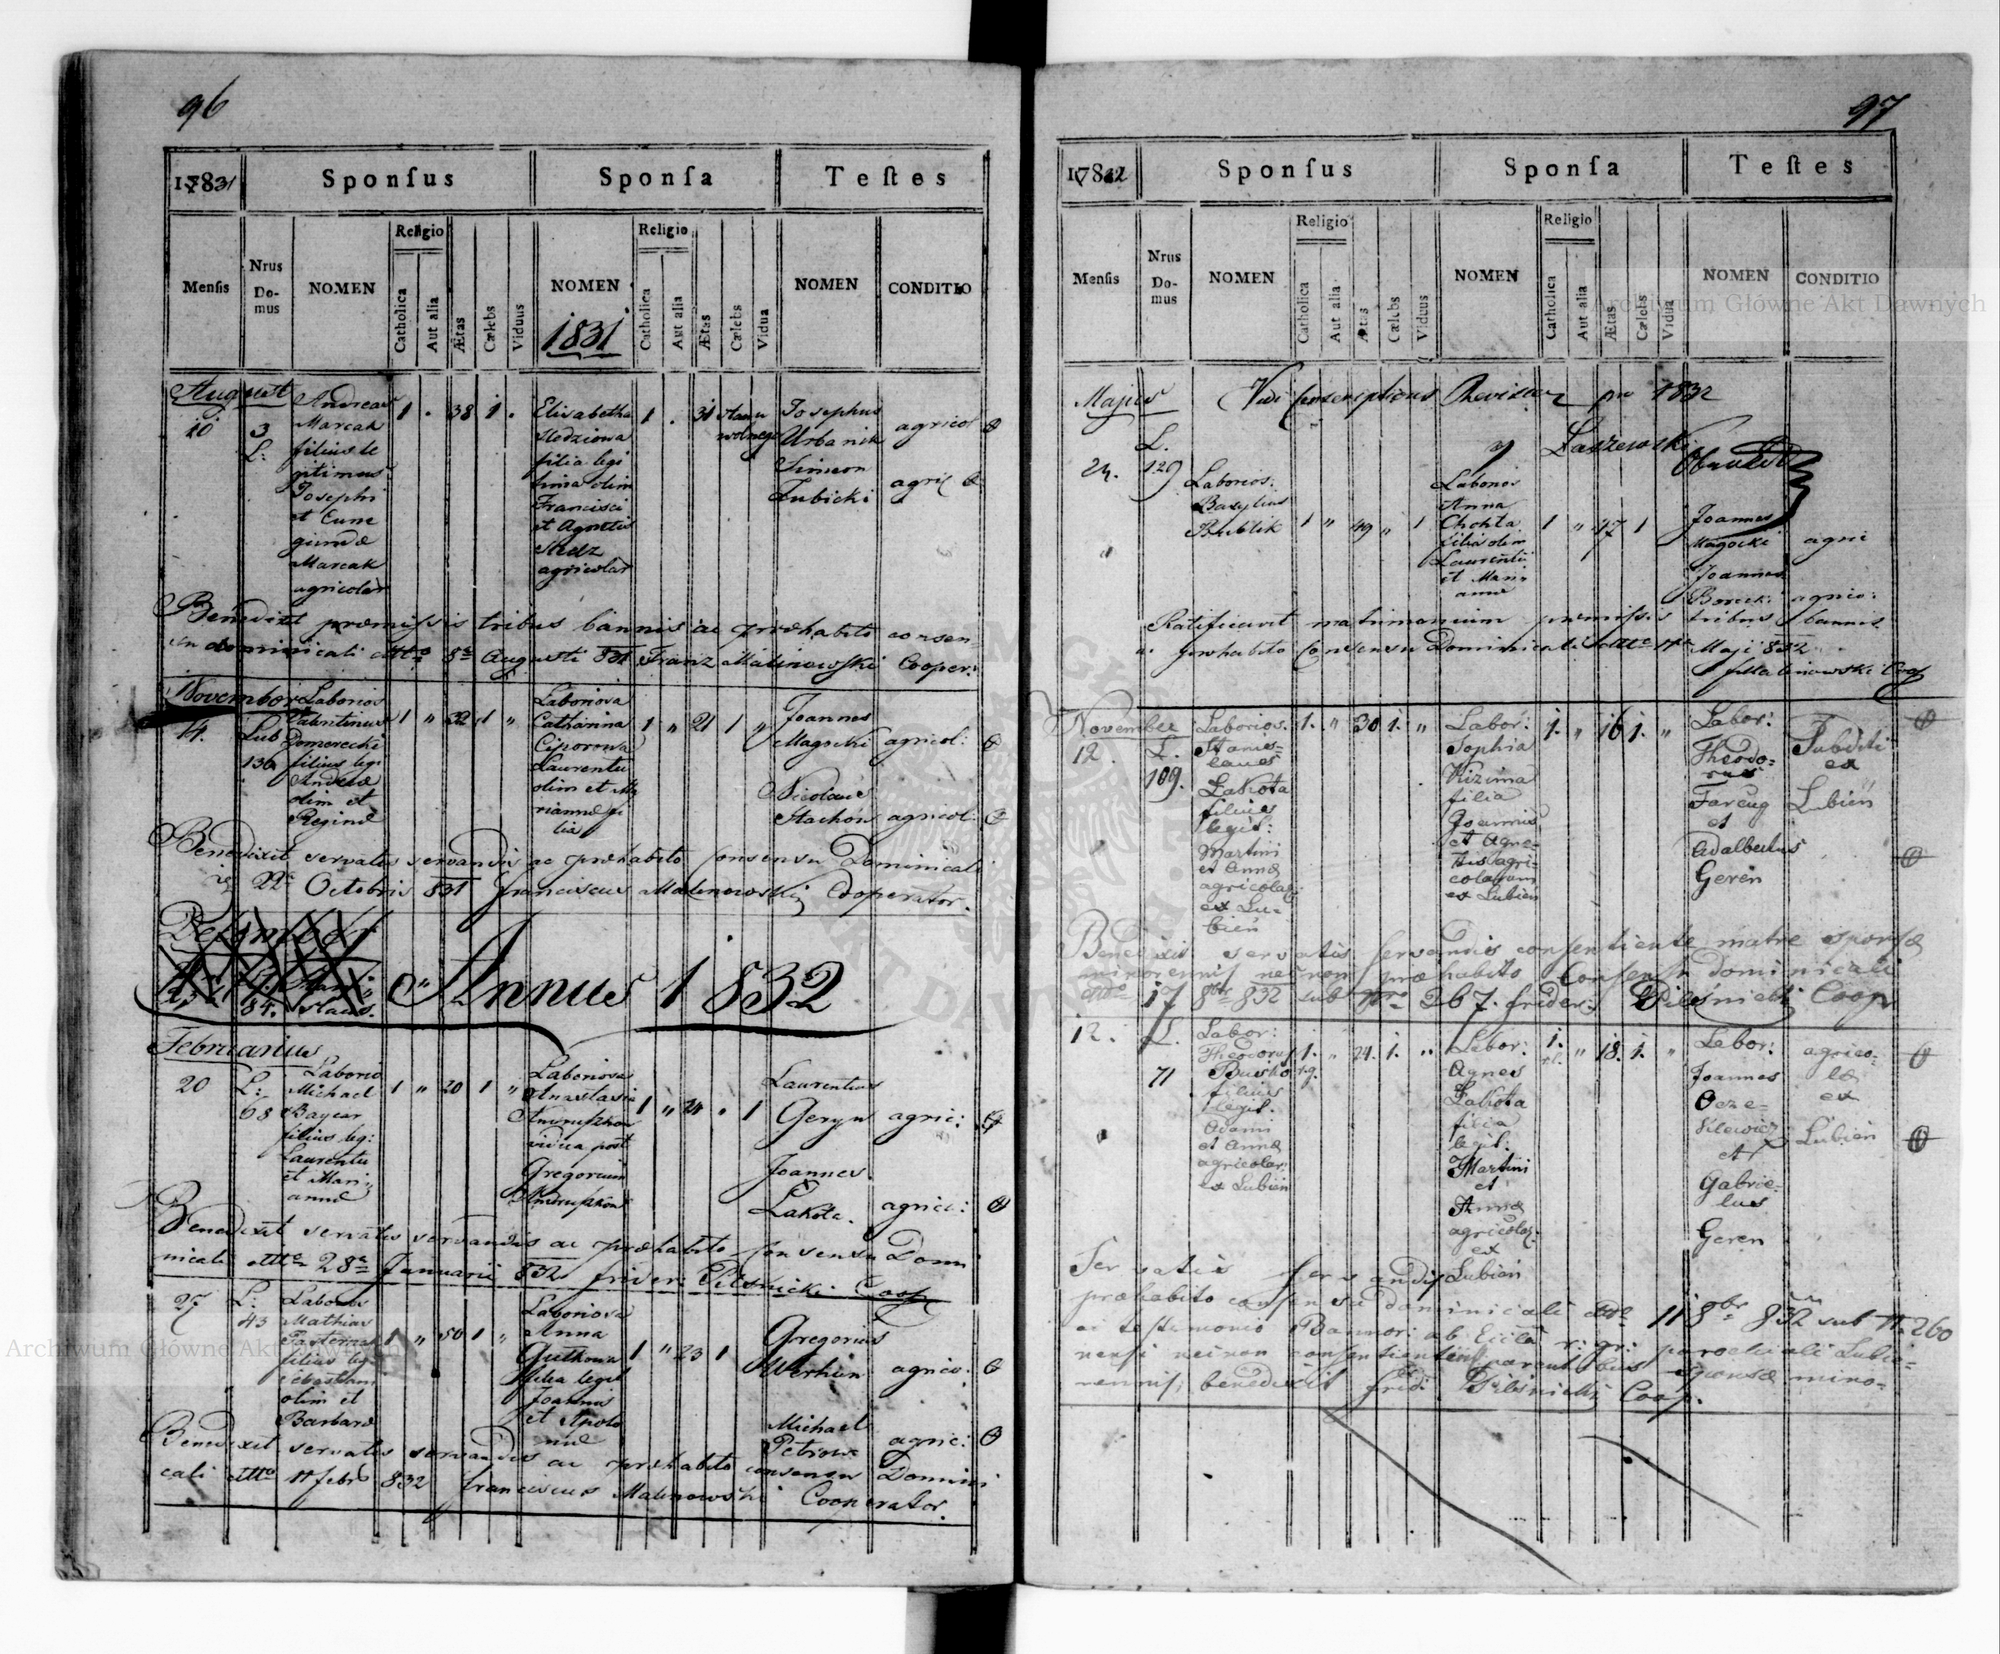 96
17831
Sponſus
Sponſa
Teſtes
Menſis
Nrus
Do-
mus
NOMEN
Religio
Catholica
Aut alia
Ætas
Cælebs
Viduus
NOMEN
1831
Religio
Catholica
Aut alia
Ætas
Cælebs
Vidua
NOMEN
CONDITIO
August
10
3
L:
Andreas
Marcak
filius le
gitimus
Josephi
et Cune
gundæ
Marcak
agricolar
1
38
1
Elisabetha
filia legi
tima olim
Francisci
agricolar
1
31
Josephus
Urbanik
agricol
Simeon
Lubicki
agric
Benedixit præmissis tribus bannis ac præhabito consen
su dominicali dtto 8a Augusti 831 Franz Malinowski Cooper:
November
14.
Lub
136
Laborios
Valentinus
Pomorecki
filius leg:
Andreæ
olim et
Reginæ
1 " 22 1 "
Laboriosa
Catharina
Laurentii
olim et Ma
riannæ fi
lia
1 " 21 1 "
Joannes
Magocki agricol:
Nicolaus
Stachon agricol.
Benedixit servatis servandis ac præhabito Consensu Dominicali
22a Octobris 831 Franciscus Malinowski Cooperator.
Annus 1832
Februarius
20
L:
68
Laborio
Michael
filius leg:
Laurentii
et Mari
annæ
1 " 20 1 "
Laboriosa
Anastasia
vidua post
Gregorium
1 " 24 " 1
Laurentius
Geryn agric:
Joannes
Lakota. agric:
Benedixit servatis servandis ac præhabito Consensu Domi
nicali dtto 28a Januarii 832 frider: Pilsnicki Coop
27
L:
43
Laborios
Mathias
Pasternak
filius leg
Sebastiani
olim et
Barbaræ
1 " 50 1 "
Laboriosa
Anna
filia legit
Joannis
et Apolo
niæ
1 " 23 1
Gregorius
agric:
Michael
agric:
Benedixit servatis servandis ac præhabito consensu Domini
cali dtto 11 febr 832 Franciscus Malinowski Cooperator.
97
Sponſus
Sponſa
Teſtes
Menſis
Nrus
Do-
mus
NOMEN
Religio
Catholica
Aut alia
Ætas
Cælebs
Viduus
NOMEN
Religio
Catholica
Aut alia
Ætas
Cælebs
Vidua
NOMEN
CONDITIO
Majus
pro 1832
Laszewski
24.
L.
129
Laborios:
Basylius
Bublik
1 " 49 " 1
Laborios
Anna
Chohta
filia olim
Laurentii
et Mari
annæ
1 " 47 1
Joannes
Magocki agric
Joannes
Borecki agric:
Ratificavit matrimonium præmissis tribus bannis
præhabito Consensu Dominicali
Maji 832
Malinowski Coop
November
12.
L.
109.
Laborios.
Stanis-
laus
Lakota
filius
legit:
Martini
et Annæ
agricolar:
ex Lu-
bień
1. " 30 1. "
Labor:
Sophia
Kizima
filia
Joannis
et Agne-
tis agri-
colarum
ex Lubień
1. " 16 1. "
Labor:
Theodo-
rus
Farcug
et
Adalbertus
Geren
Subditi
ex
Lubień
Benedixit servatis servandis consentiente matre sponsæ
minorennis necnon præhabito Consensu dominicali
ddto 17 8br 832 sub Nro 267. frider: Pilsnicki Coop
12.
L.
71
Labor:
Theodorus
Busko
filius
legit.
Adami
et Annæ
agricolar.
ex Lubień
1. " 24. 1. "
Labor:
Agnes
Lakota
filia
legit.
Martini
et
Annæ
agricolar:
ex
Lubień
1. " 18. 1. "
Labor:
Joannes
et
Gabrie-
lus
Geren
agrico-
læ
ex
Lubień
Servatis servandis
præhabito consensu dominicali ddto 11 8br 832 sub N. 260
ac testimonio Bannor: ab Eccla r: gr: parochiali Lubie-
nensi necnon consentientibus parentibus sponsæ mino-
rennis, benedixit frid: Pilsnicki Coop.
Archiwum Główne Akt Dawnych
Archiwum Główne Akt Dawnych